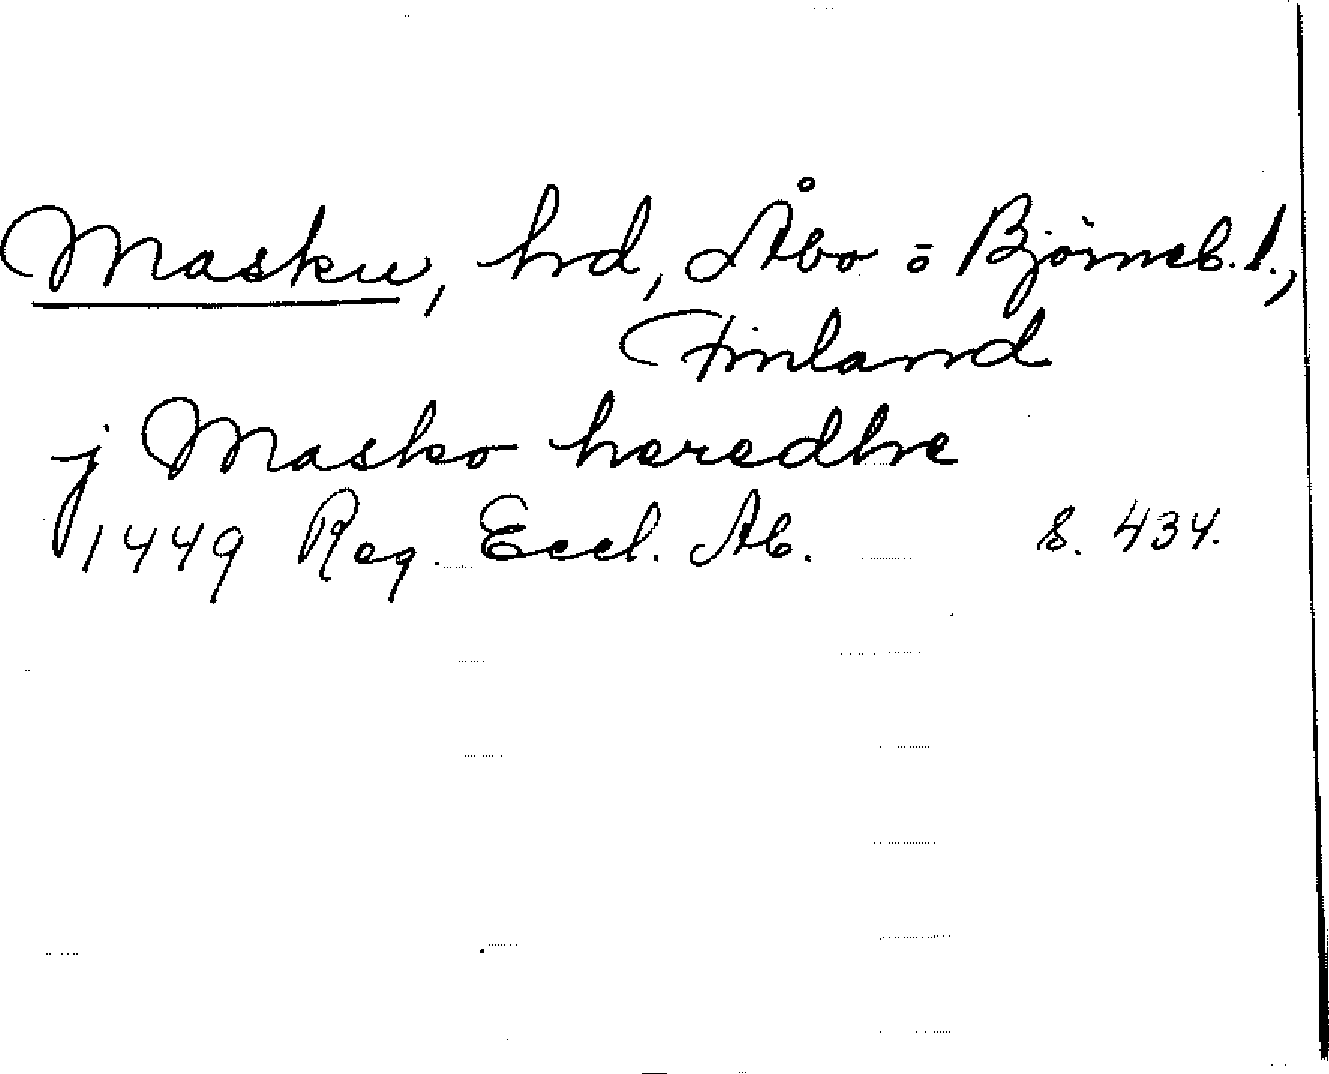 Masku, hrd, Åbo o Björneb. l.,
Finland
j Masko heredhe
1449 Reg. Eccl. Ab. s. 434.